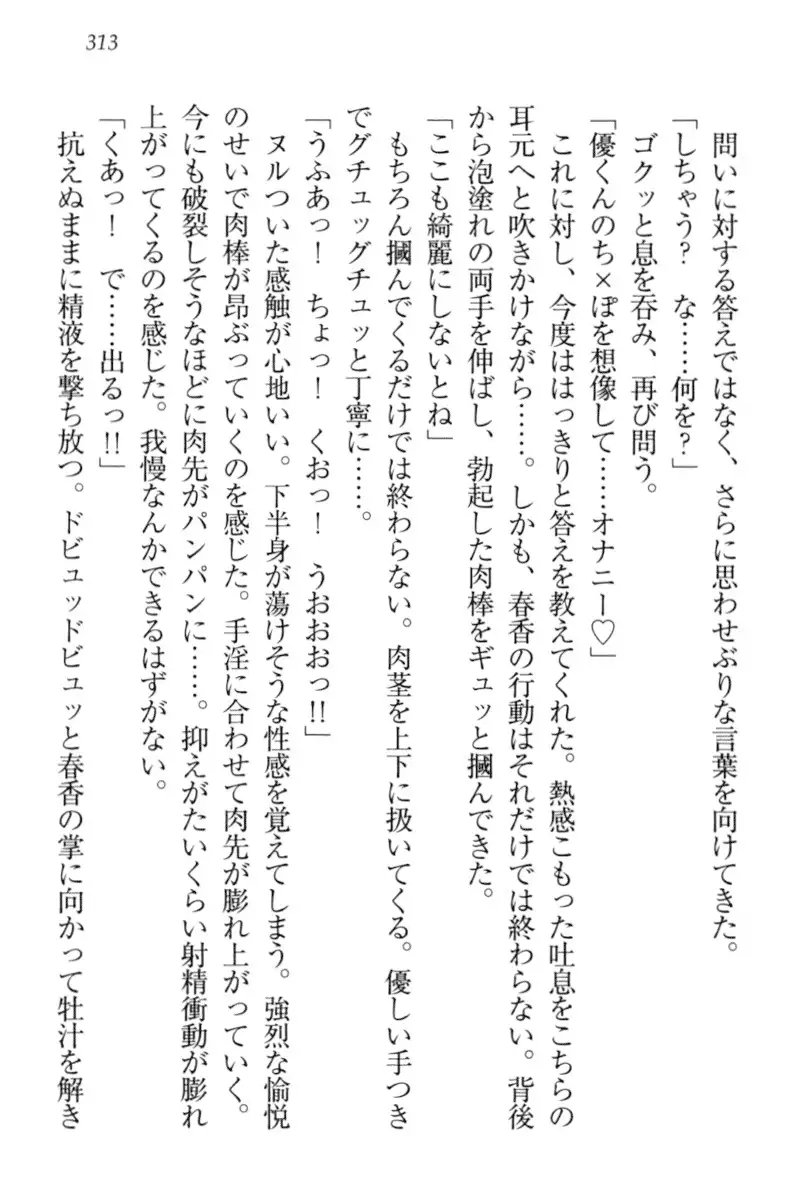 313
問いに対する答えではなく、さらに思わせぶりな言葉を向けてきた。
「しちゃう？　な……何を？」
ゴクッと息を呑み、再び問う。
「優くんのち×ぽを想像して……オナニー♡」
これに対し、今度ははっきりと答えを教えてくれた。熱感こもった吐息をこちらの
耳元へと吹きかけながら……。しかも、春香の行動はそれだけでは終わらない。背後
から泡塗れの両手を伸ばし、勃起した肉棒をギュッと摑んできた。
「ここも綺麗にしないとね」
もちろん摑んでくるだけでは終わらない。肉茎を上下に扱いてくる。優しい手つき
でグチュッグチュッと丁寧に……。
「うふあっ！　ちょっ！　くおっ！　うおおおっ!!」
ヌルついた感触が心地いい。下半身が蕩けそうな性感を覚えてしまう。強烈な愉悦
のせいで肉棒が昂ぶっていくのを感じた。手淫に合わせて肉先が膨れ上がっていく。
今にも破裂しそうなほどに肉先がパンパンに……。抑えがたいくらい射精衝動が膨れ
上がってくるのを感じた。我慢なんかできるはずがない。
「くあっ！　で……出るっ!!」
抗えぬままに精液を撃ち放つ。ドビュッドビュッと春香の掌に向かって牡汁を解き